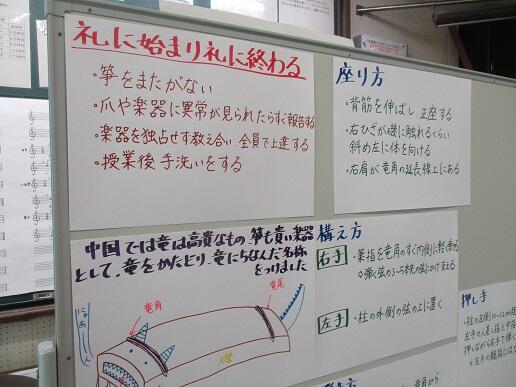 礼に始まり礼に終わる
・箏をまたがない
・爪や楽器に異常が見られたらすぐ報告する
・楽器を独占せず教え合い、全員で上達する
・授業後手洗いをする
座り方
・背筋を伸ばし、正座する
・右ひざが磯に触れるくらい
斜め左に体を向ける
・右肩が竜角の延長線上にある
中国では竜は高貴なもの。箏も貴い楽器
として、竜をかたどり、竜にちなんだ名称
をつけました
竜角
竜尾
にゃあーん
構え方
右手
・薬指を竜角のすぐ内側に軽く
左手
・柱の外側の弦の上に置く
押し手
・柱の左側10~12cm程
左手の人差し指と中指
押しながら右手で弾く